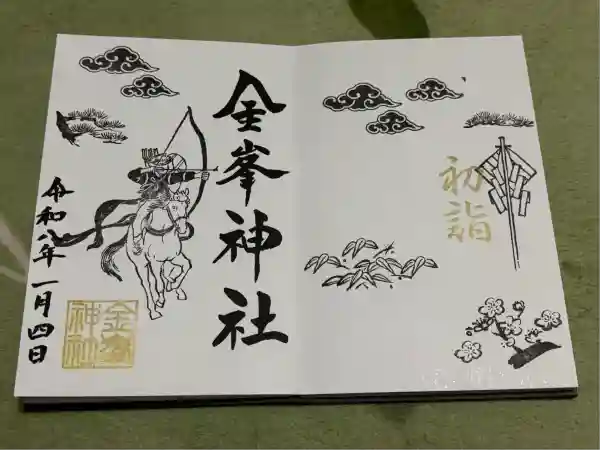 初詣
金峯神社
令和八年一月四日
金峯
神社